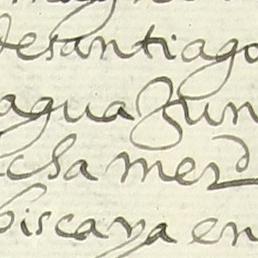 desantiago
agua Jun
cha merd
biscaya en